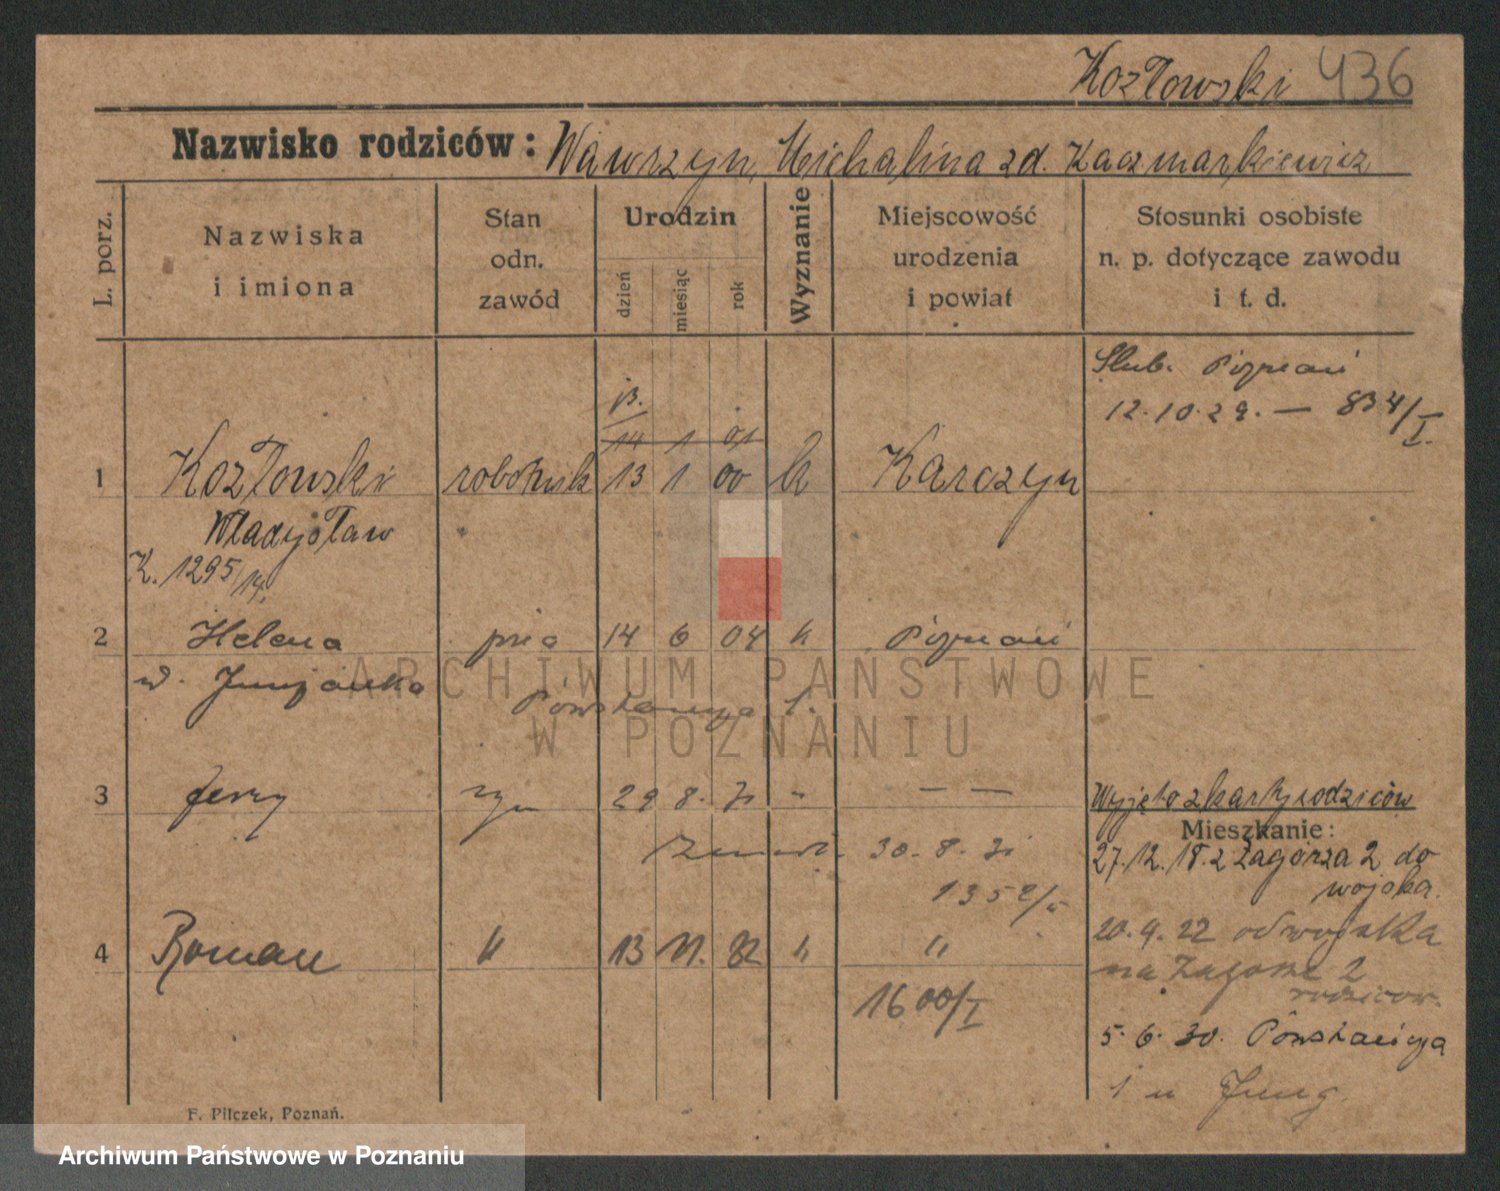 Kozłowski 436
Nazwisko rodziców: Wawrzyn, Michalina zd. Kaczmarkiewicz
L. porz.
Nazwiska
i imiona
Stan
odn.
zawód
Urodzin
dzień
miesiąc
rok
Wyznanie
Miejscowość
urodzenia
i powiat
Stosunki osobiste
n. p. dotyczące zawodu
i t. d.
Ślub. Poznań
12.10.29. — 834/I.
14 1 01
1 Kozłowski robotnik 13 1 00 k Karczyn
Władysław
K. 1295/14.
2 Helena 14 6 04 k Poznań
ARCHIWUM PAŃSTWOWE
W POZNANIU
Powstańcza 1.
3 Jerzy syn 29 8. 31 " — —
Wyjęto z karty rodziców
Mieszkanie:
30. 8. 31
1352/II
27.12.18. z Zagórza 2 do
wojska.
4 Roman " 13 11. 32 " "
1600/I
20.9.22 od wojska
na Zagórze 2
rodziców.
5. 6. 30. Powstańcza
1 u Jung
F. Pilczek, Poznań.
Archiwum Państwowe w Poznaniu